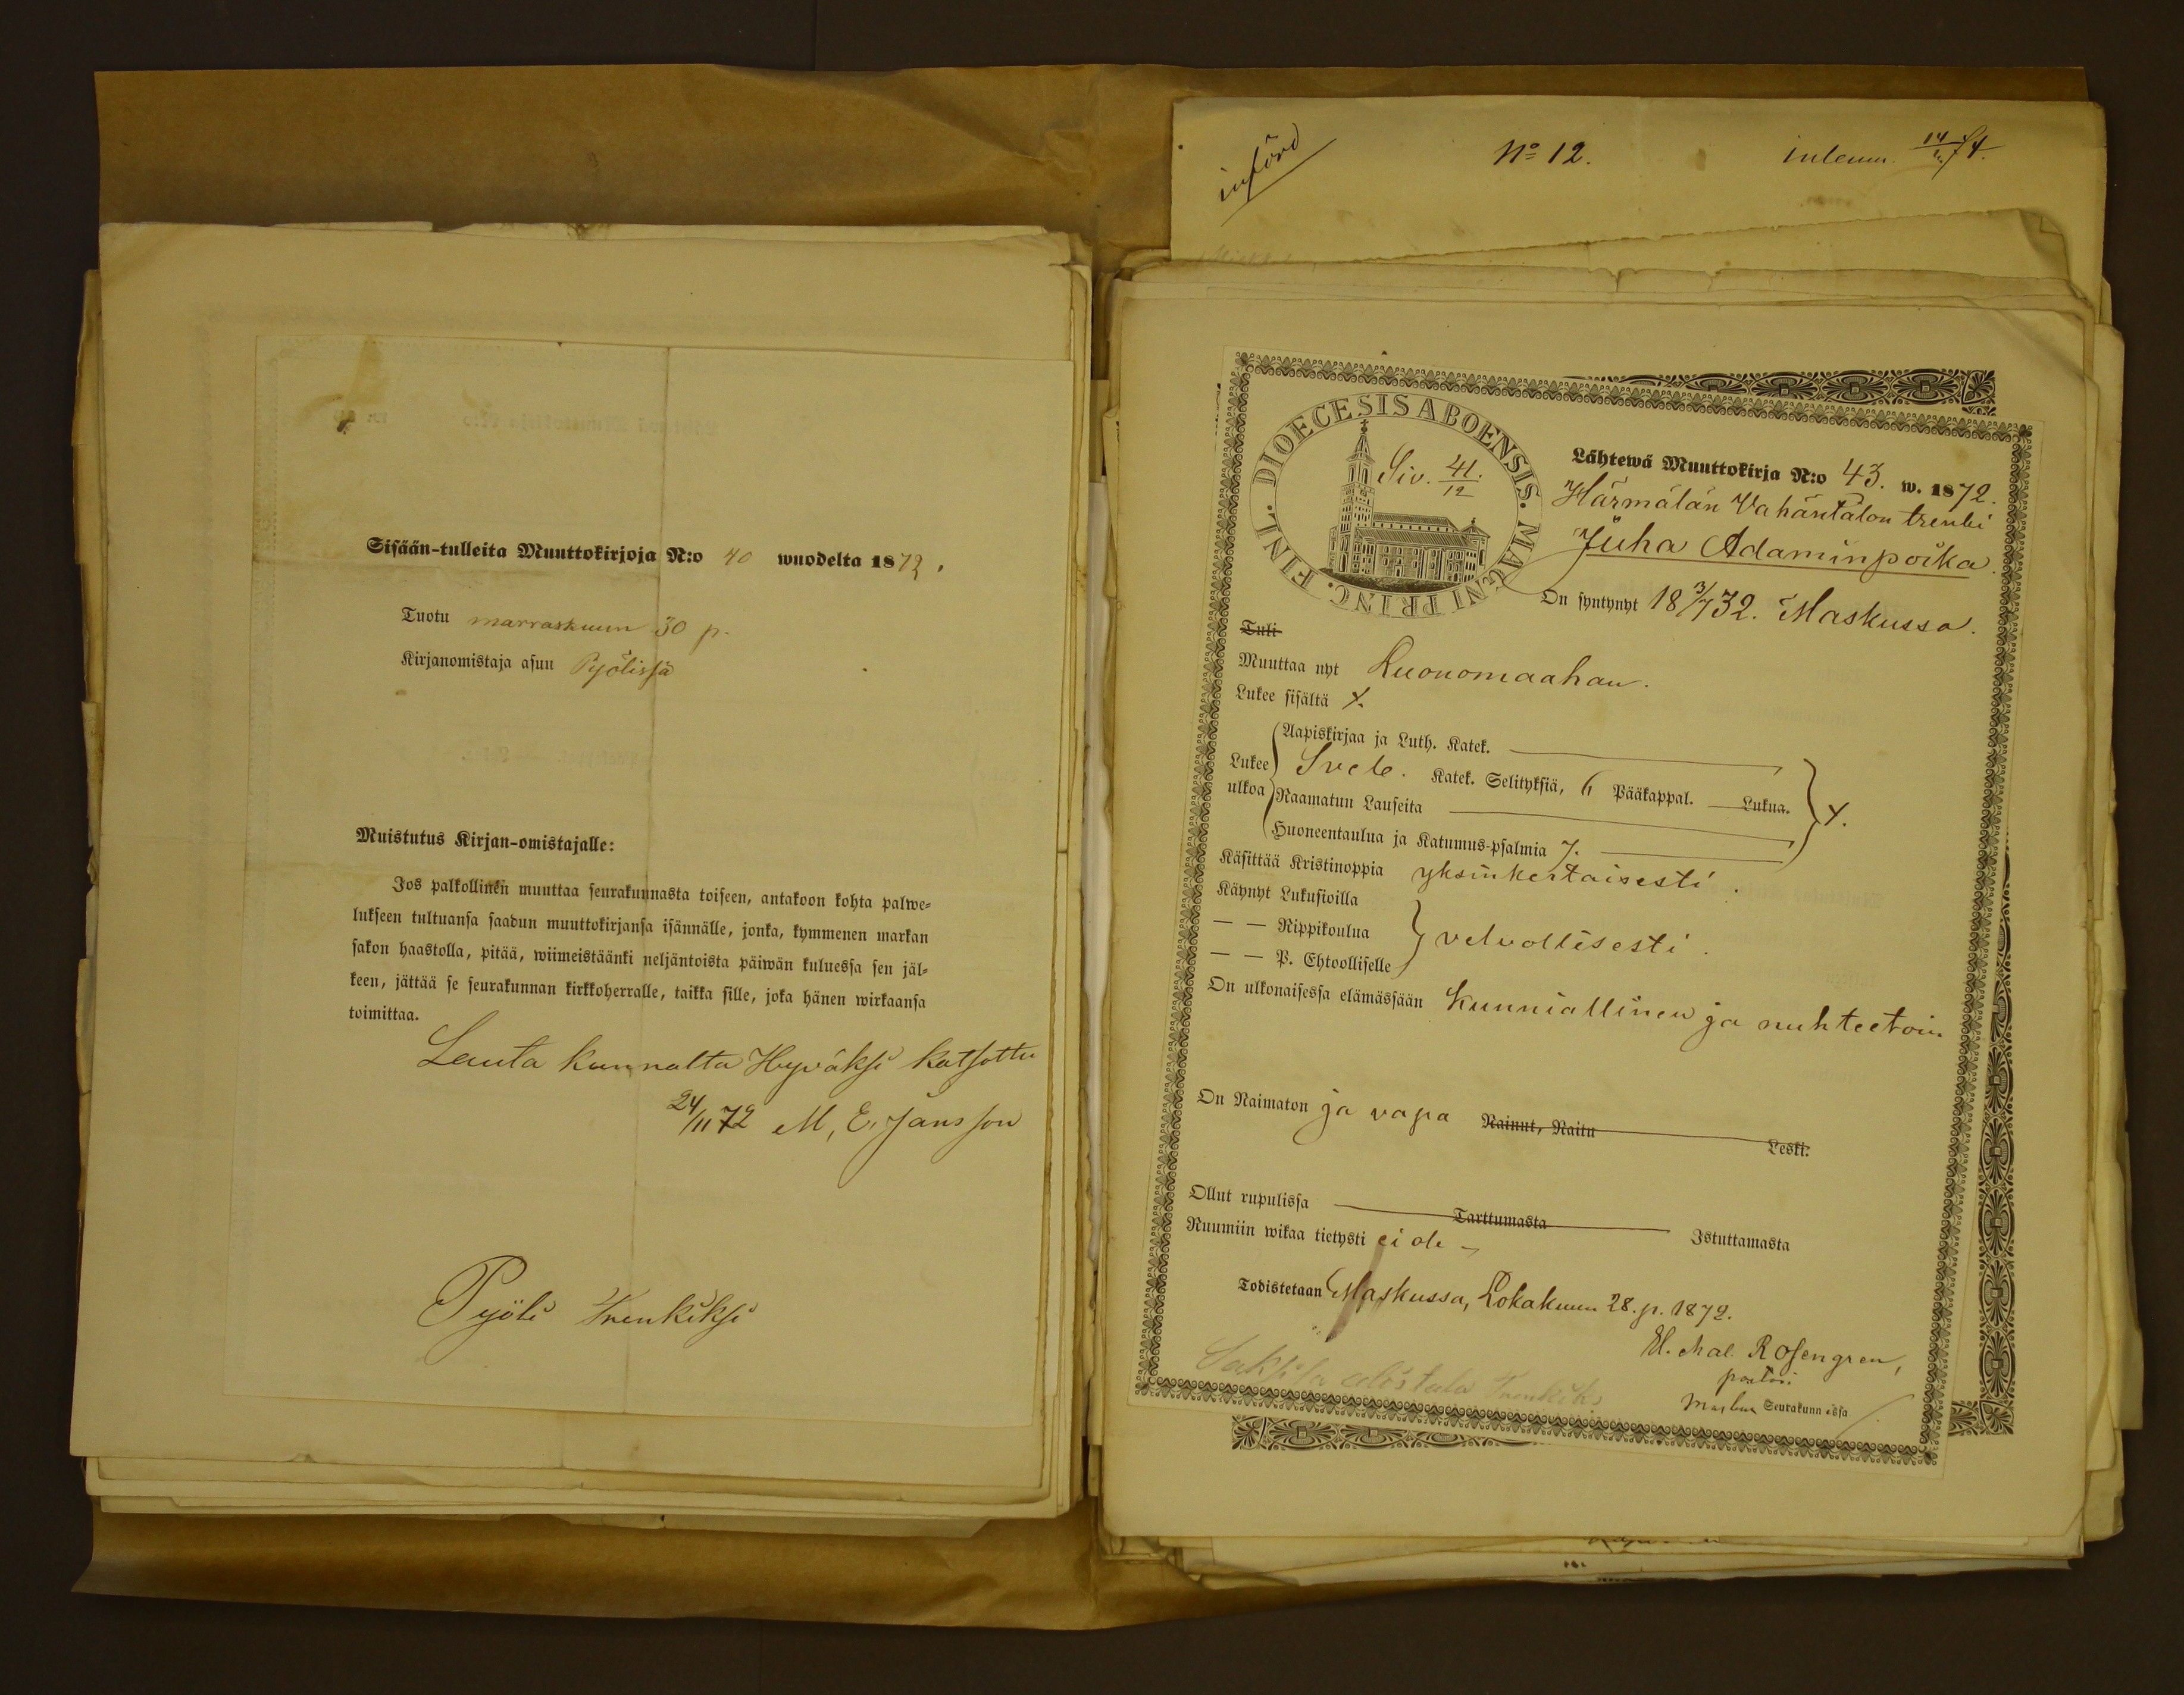 Sisään-tulleita Muuttokirjoja N:o 40 wuodelta 1872.
Tuotu marraskuun 30 p.
Kirjanomistaja asuu Pyölissä
Muistutus Kirjan-omistajalle:
Jos palkollinen muuttaa seurakunnasta toiseen, antakoon kohta palwe-
lukseen tultuansa saadun muuttokirjansa isännälle, jonka, kymmenen markan
sakon haastolla, pitää, wiimeistäänki neljäntoista päiwän kuluessa sen jäl-
keen, jättää se seurakunnan kirkkoherralle, taikka sille, joka hänen wirkaansa
toimittaa.
Lauta kunnalta Hyväksi katsottu
24/11 72 M, E, Jansson
Pyöli Trenkiksi
införd
No 12.
inlemn. 14/ 74.
DIOECESIS ABOENSIS. MAGNI PRINC. FINL.
Siv. 41./12
Lähtewä Muuttokirja N:o 43. w. 1872.
Härmälän Vahäntalon trenki
Juha Adaminpoika.
On syntynyt 18 3/7 32. Maskussa.
Tuli
Muuttaa nyt Luonomaahan.
Lukee sisältä X.
Lukee ulkoa
Aapiskirjaa ja Luth. Katek.
Sveb. Katek. Selityksiä, 6 Pääkappal. Lukua.
Raamatun Lauseita
X.
Huoneentaulua ja Katumus-psalmia 7.
Käsittää Kristinoppia yksinkertaisesti.
Käynyt Lukusioilla
— — Rippikoulua velvollisesti.
— — P. Ehtoolliselle
On ulkonaisessa elämässään kunniallinen ja nuhteetoin
On Naimaton ja vapa Nainut, Naitu Leski.
Ollut rupulissa Tarttumasta Istuttamasta
Ruumiin wikaa tietysti ei ole
Todistetaan Maskussa, Lokakuun 28. p. 1872.
El. Mal. Rosengren,
pastori
Maskun Seurakunnassa
alöstalo Trenkiks